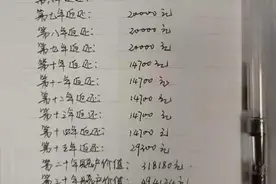 第七年返还: 20000元
第八年返还: 20000元
第九年返还: 20000元
第十年返还: 14700元
第十一年返还: 14700元
第十二年返还: 14700元
第十三年返还: 14700元
第十四年返还: 14700元
第十五年返还: 29300元
第二十年账户价值: 318180元
第三十年账户价值: